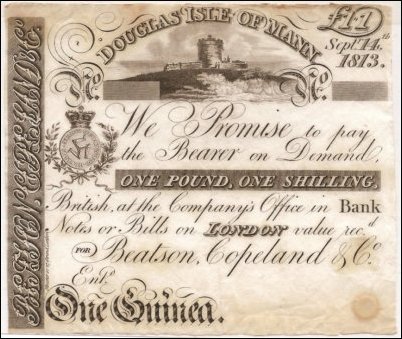 DOUGLAS ISLE OF MANN
£1.1
Septr. 14th
1813.
No.
No.
We Promise to pay
the Bearer on Demand,
ONE POUND, ONE SHILLING.
British, at the Company's Office in Bank
Notes or Bills on LONDON value recd.
FOR
Beatson, Copeland & Co
Entd.
One Guinea.